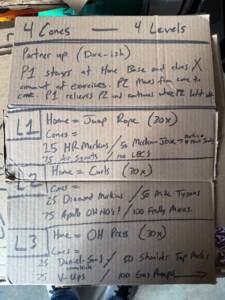 4 Cones — 4 Levels
Partner up (Dora-ish)
P1 stays at Home Base and does X
amount of exercises. P2 Moves from cone to
cone. P1 relieves P2 and continues where P2 left off
L1 Home = Jump Rope (30x)
Cones =
25 HR Merkins / 50 Merkin Jax
75 Air Squats / 100 LBCs
L2 Home = Curls (30x)
Cones =
25 Diamond Merkins / 50 Mike Tysons
75 Apollo Ohnos! / 100 Freddy Mercs.
L3 Home = OH Press (30x)
Cones =
25 / 50 Shoulder Tap Merks
75 V-Ups / 100